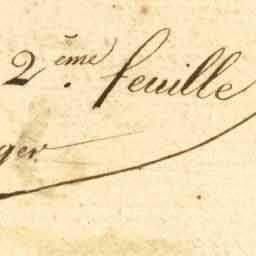 2.ème feuille
ger